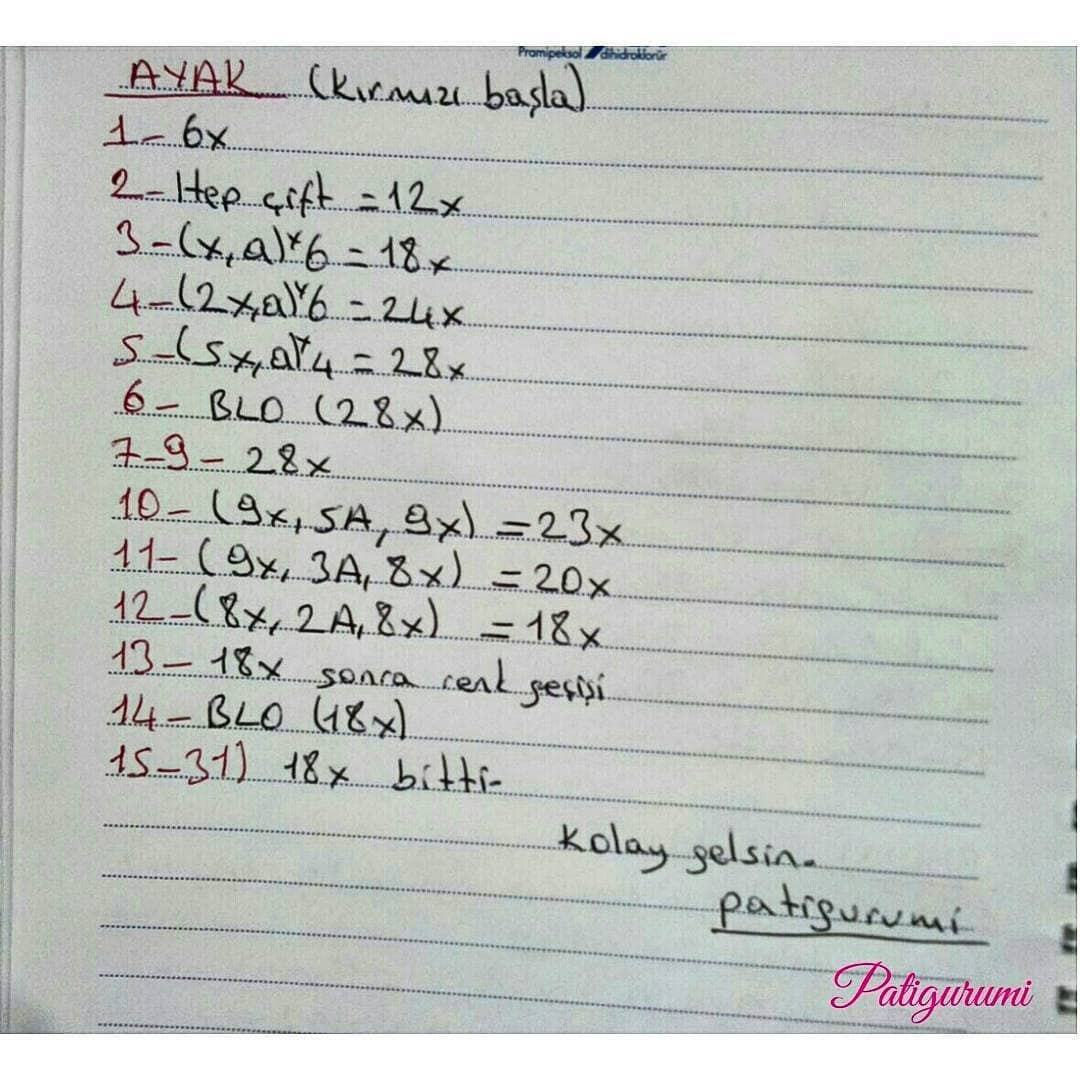 Pramipeksol dihidroklorür
AYAK (Kırmızı başla)
1- 6x
2- Hep çift = 12x
3- (x, a)*6 = 18x
4- (2x, a)*6 = 24x
5- (5x, a)*4 = 28x
6- BLO (28x)
7-9- 28x
10- (9x, 5A, 9x) = 23x
11- (9x, 3A, 8x) = 20x
12- (8x, 2A, 8x) = 18x
13- 18x sonra renk geçişi
14- BLO (18x)
15-31) 18x bitti-
Kolay gelsin.
patigurumi
Patigurumi